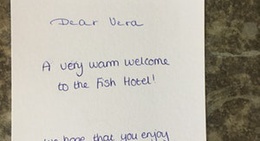 Dear Vera
A very warm welcome
to the Fish Hotel!
We hope that you enjoy